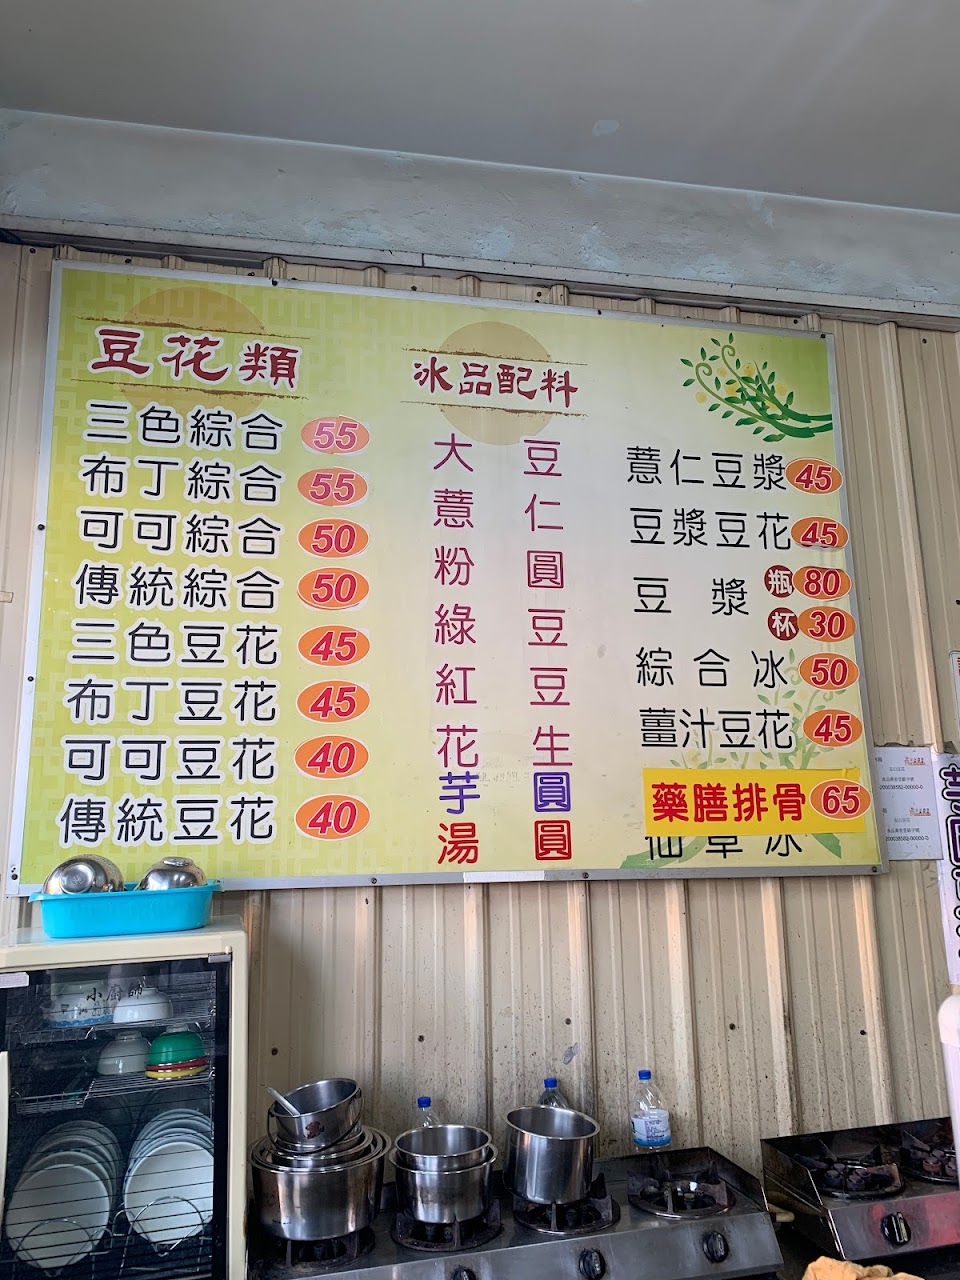 豆花類
三色綜合 55
布丁綜合 55
可可綜合 50
傳統綜合 50
三色豆花 45
布丁豆花 45
可可豆花 40
傳統豆花 40
冰品配料
大豆
薏仁
粉圓
綠豆
紅豆
花生
芋圓
湯圓
薏仁豆漿 45
豆漿豆花 45
豆漿 瓶 80
杯 30
綜合冰 50
薑汁豆花 45
藥膳排骨 65
仙草冰
小廚師